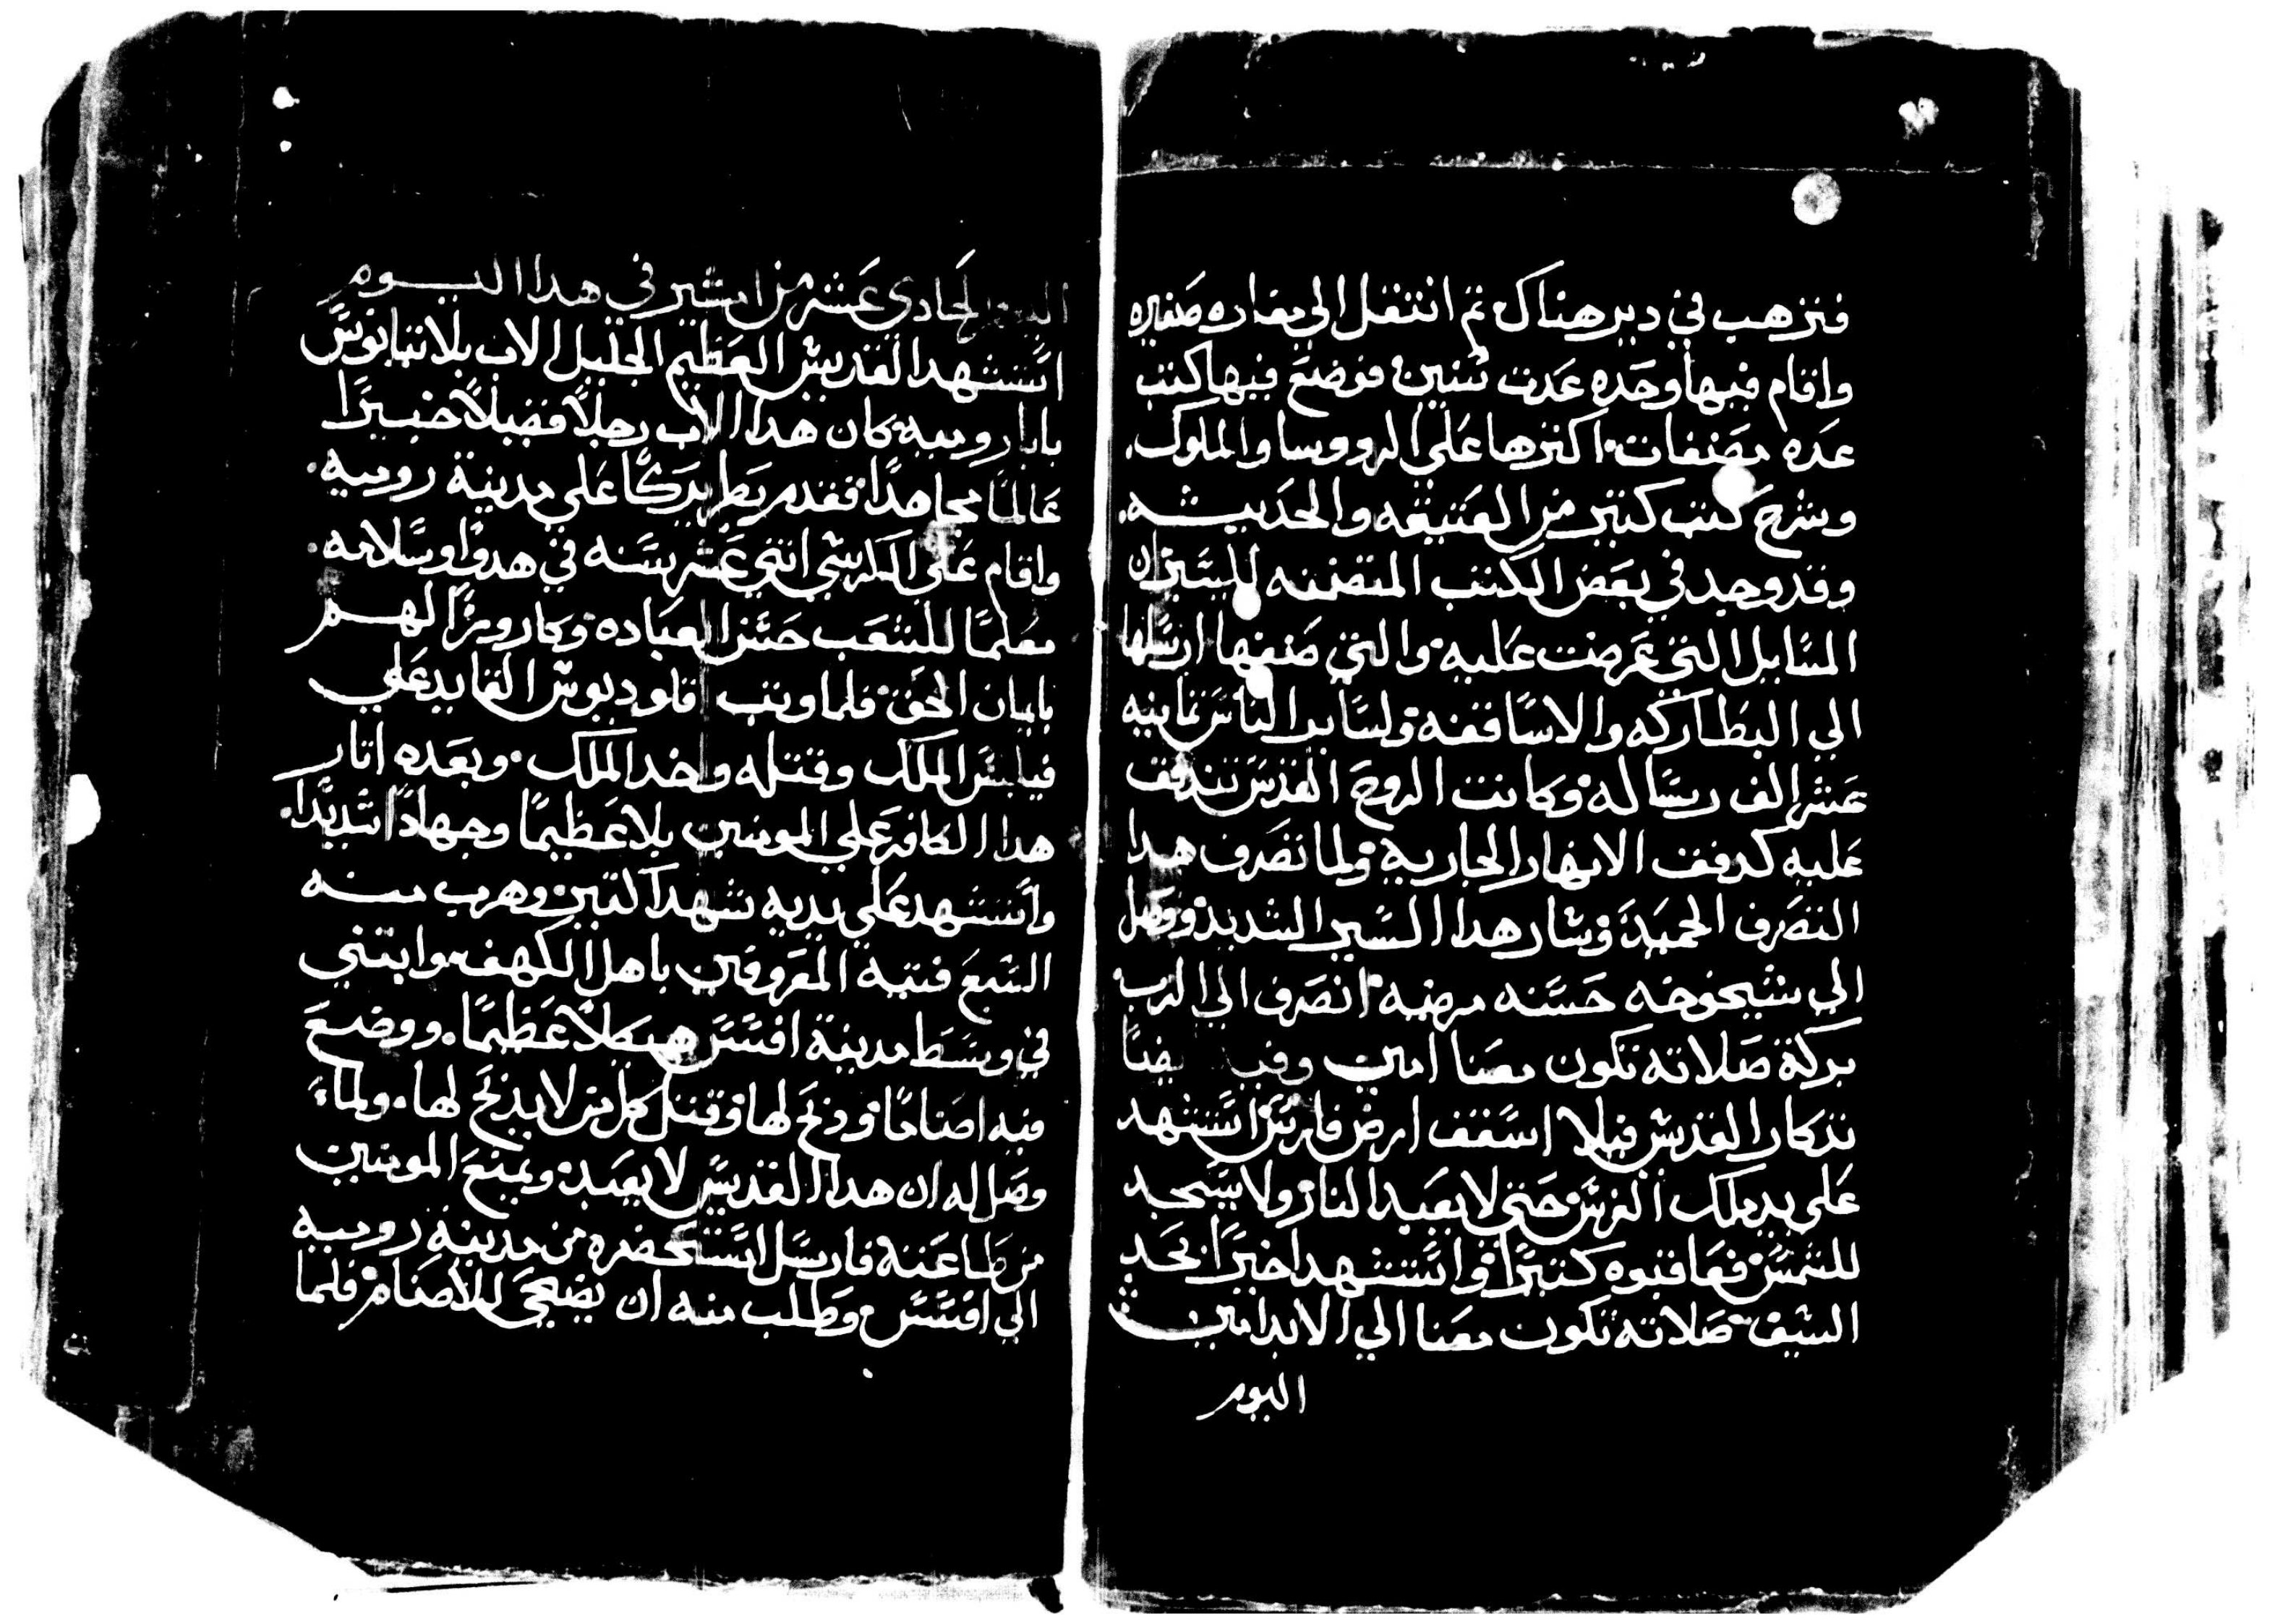 فترهب في دير هناك ثم انتقل الي مغاره صغيره
واقام فيها وحده عدت سنين فوضع فيها كتب
عده مصنفات اكثرها علي الرووسا والملوك.
وشرح كتب كتير من العتيقه والحديثه.
وقد وجد في بعض الكتب المتضمنه للسير ان
المسايل التي عرضت عليه والتي صنفها ارسلها
الي البطاركه والاساقفه ولساير الناس تمانيه
عشر الف رساله وكانت الروح القدس تتدفق
عليه كدفق الانهار الجاريه ولما تصرف هدا
التصرف الحميد وسار هدا السير الشديد ووصل
الي شيخوخه حسنه مرضيه انصرف الي الرب
بركة صلاته تكون معنا امين وفيه ايضا
تذكار القديس فيلا اسقف ارض فارس استشهد
علي يد ملك الفرس حتي لا يعبد النار ولا يسجد
للشمس فعاقبوه كتيرًا واستشهد اخيرًا بحد
السيف صلاته تكون معنا الي الابد امين
اليوم
اليوم الحادي عشر من امشير في هدا اليوم
استشهد القديس العظيم الجليل الاب بلاتيانوس
بابا روميه كان هدا الاب رجلاً فضيلاً خبيرًا
عالمًا مجاهدًا فقدم بطريركًا علي مدينة روميه.
واقام علي الكرسي اتني عشر سنه في هدوًا وسلامه.
معلمًا للشعب حسن العباده وكاروزًا لهم
بايمان الحق فلما وتب اقلوديوس القايد علي
فيلبس الملك وقتله واخد الملك. وبعده اتار
هدا الكافر علي المومنين بلا عظيمًا وجهادًا شديدًا.
واستشهد علي يديه شهدا كتيرين وهرب منه
السبع فتيه المعروفين باهل الكهف وابتني
في وسط مدينة افسس هيكلاً عظيمًا. ووضع
فيه اصنامًا وذبح لها وقتل كل من لا يذبح لها. ولما
وصل له ان هدا القديس لا يعبد ويمنع المومنين
من طاعته فارسل استحضره من مدينة روميه
الي افسس وطلب منه ان يضحي للاصنام فلما